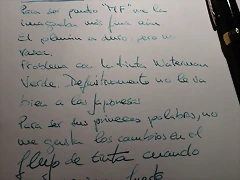 Para ser punto "MF" me la
imaginaba más fina aún
El plumín a duro, pero no
vasca.
Problema con la tinta Waterman
Verde. Definitivamente no le va
bien a las Japonesas
Para ser tus primeras palabras, no
me gusta los cambios en el
flujo de tinta cuando